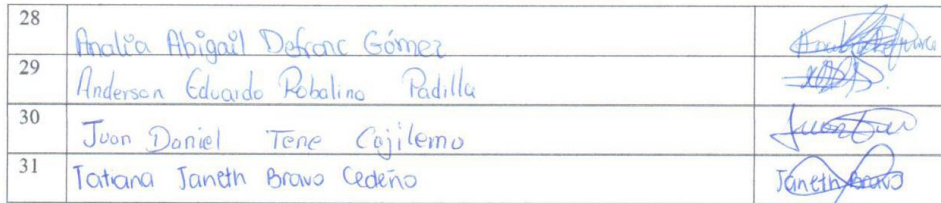 28 Analia Abigail Defranc Gómez
29 Anderson Eduardo Robalino Padilla
30 Juan Daniel Tene Cajilemo
31 Tatiana Janeth Bravo Cedeño Janeth Bravo